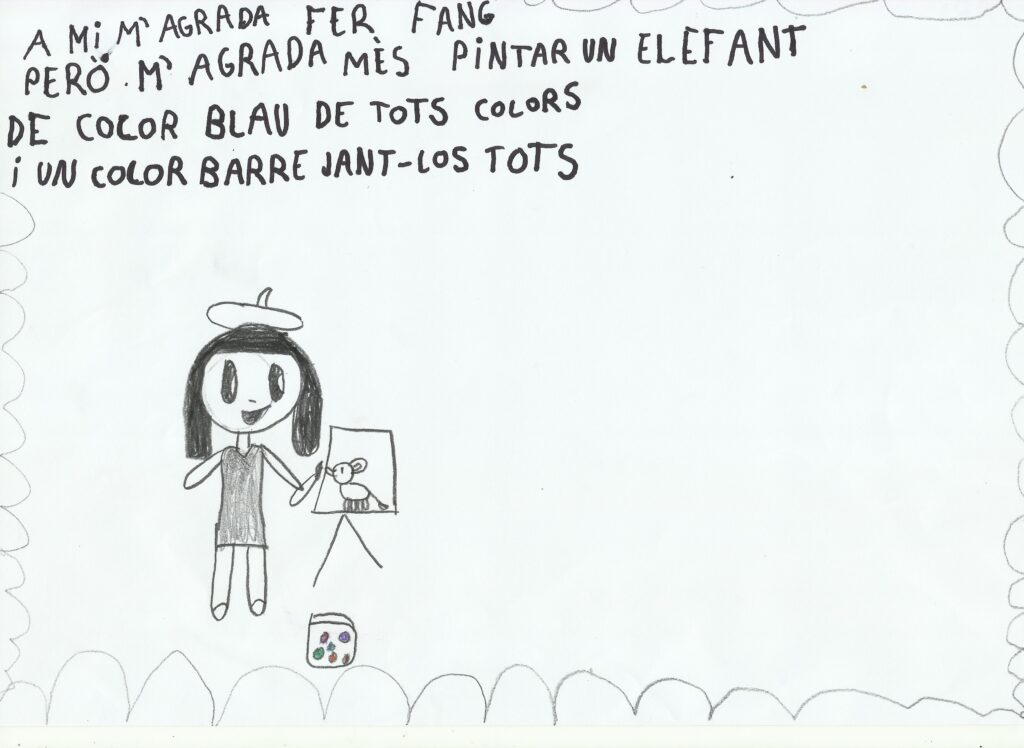 A Mi M'AGRADA FER FANG
PERÒ. M'AGRADA MÈS PiNTAR UN ELEFANT
DE COLOR BLAU DE TOTS COLORS
i UN COLOR BARRE JANT-LOS TOTS